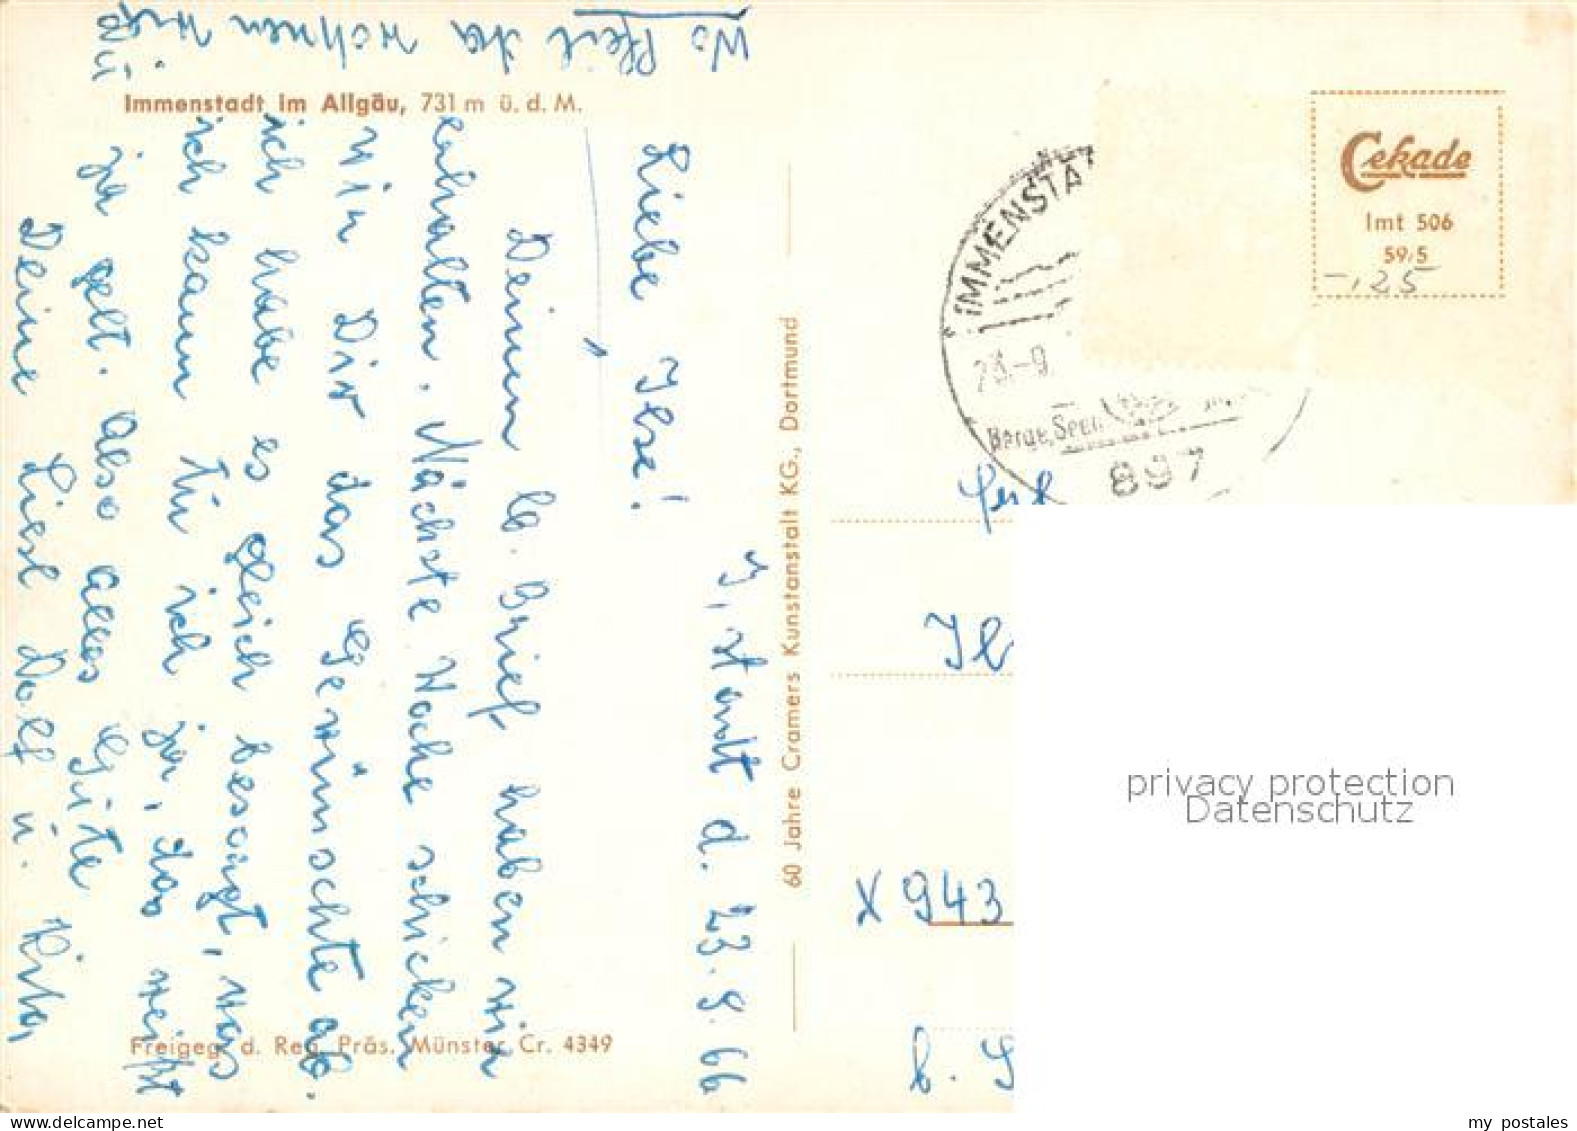 Wo Pfeil da wohnen wir
Immenstadt im Allgäu, 731 m ü. d. M.
I, stadt d. 23.9.66
Liebe Ilse!
Deinen lb. Brief haben wir
erhalten. Nächste Woche schicken
wir Dir das Gewünschte ab.
ich habe es gleich besorgt, was
ich kann tu ich ja, das weißt
ja gelt. Also alles Gute
Deine Liesl Dolf u.
Freigeg. d. Reg. Präs. Münster Cr. 4349
60 Jahre Cramers Kunstanstalt KG., Dortmund
Cekade
Imt 506
59/5
-,25
IMMENSTA
23.-9.
Berge, Seen
897
X 943
privacy protection
Datenschutz
my postales
www.delcampe.net